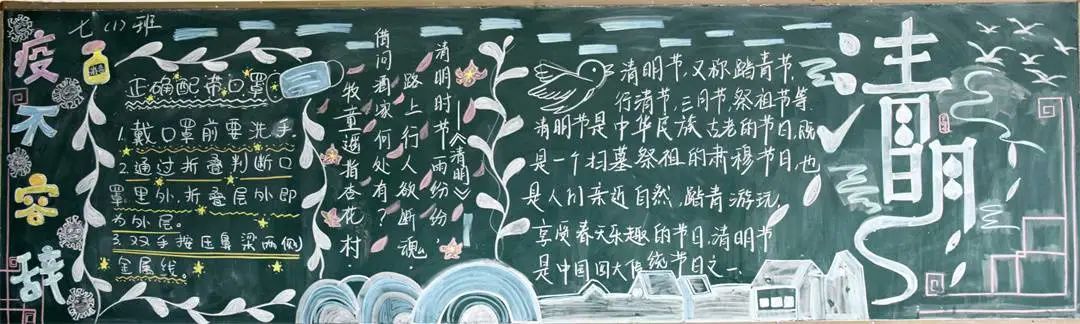 七(1)班
疫不容辞
正确配带口罩
1.戴口罩前要洗手.
2.通过折叠判断口
罩里外,折叠层外即
为外层。
3.双手按压鼻梁两侧
金属线。
——《清明》
清明时节雨纷纷
路上行人欲断魂.
借问酒家何处有?
牧童遥指杏花村.
清明节,又称踏青节,
行清节,三月节,祭祖节等.
清明节是中华民族古老的节日,既
是一个扫墓祭祖的肃穆节日,也
是人们亲近自然,踏青游玩,
享受春天乐趣的节日,清明节
是中国四大传统节日之一.
清明